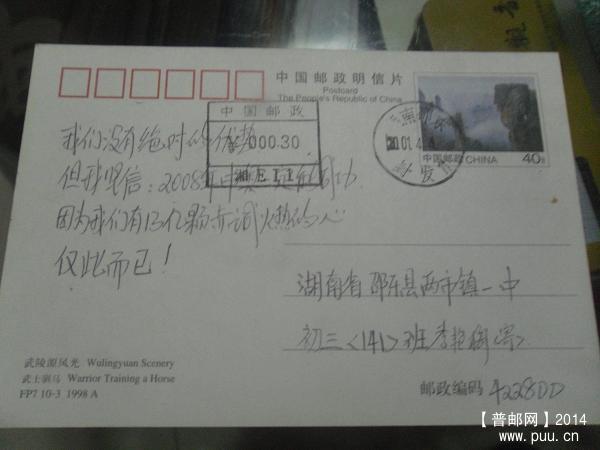 中国邮政明信片
Postcard
The People's Republic of China
中国邮政
000.30
湘E11
2001.4
中国邮政 CHINA 40分
我们没有绝对的优势
但我坚信:2008年中 一定能成功
因为我们有13亿颗赤诚火热的心
仅此而已!
湖南省邵东县两市镇一中
初三<141>班李艳 <寄>
邮政编码 422800
武陵源风光 Wulingyuan Scenery
武士驯马 Warrior Training a Horse
FP7 10-3 1998 A
【普邮网】2014
www.puu.cn